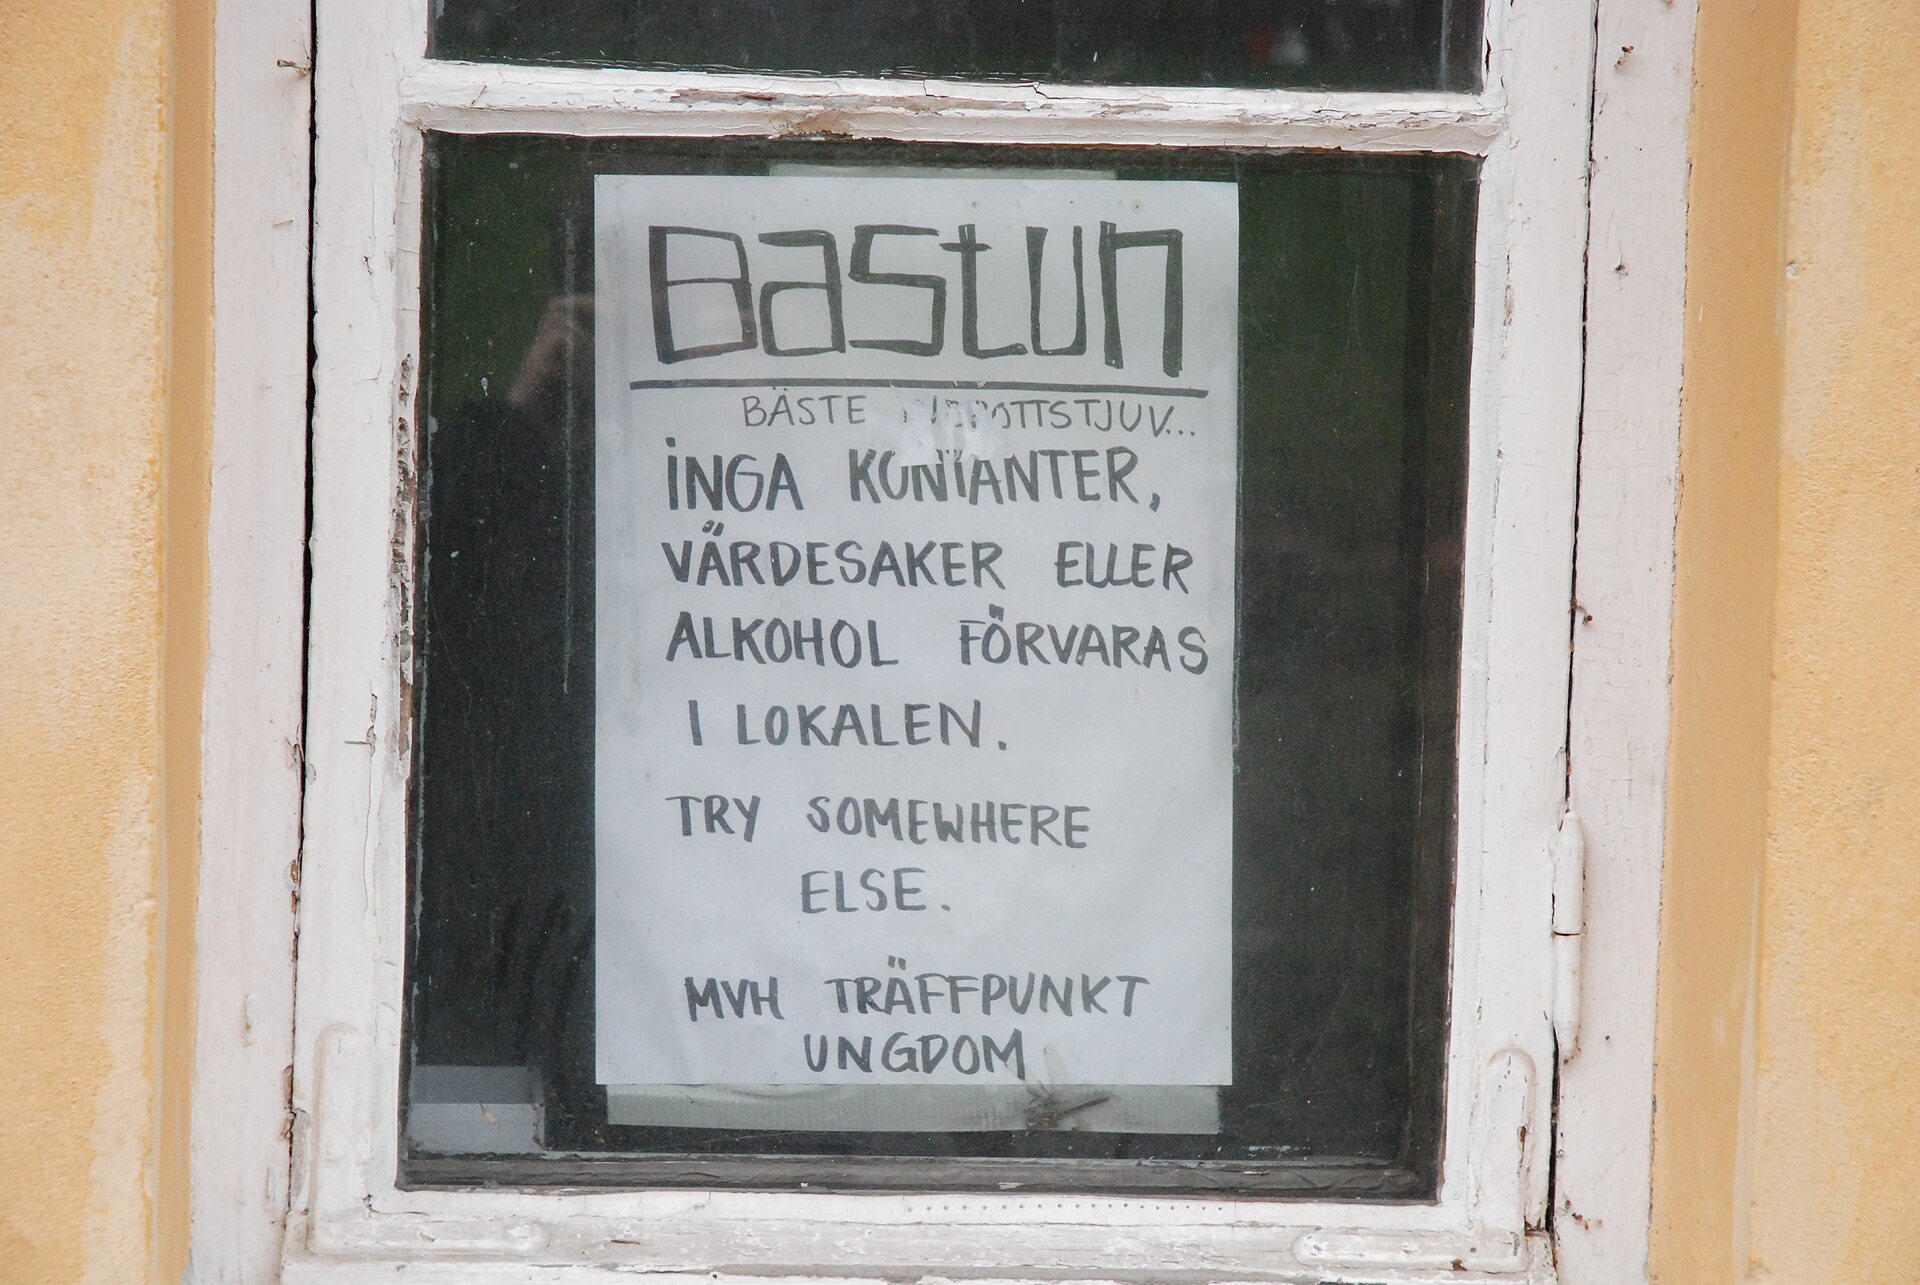 Bastun
BÄSTE
INGA KONTANTER,
VÄRDESAKER ELLER
ALKOHOL FÖRVARAS
I LOKALEN.
TRY SOMEWHERE
ELSE.
MVH TRÄFFPUNKT
UNGDOM